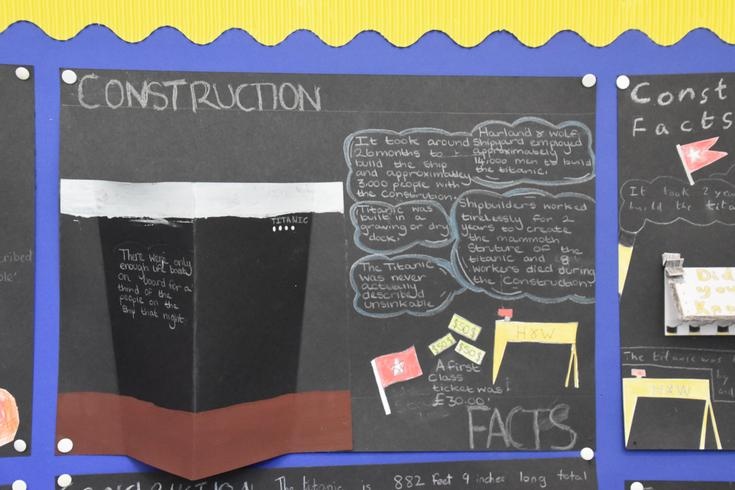 CONSTRUCTION
TITANIC
There were only
enough life boats
on board for a
third of the
people on the
Ship that night.
It took around
26 months to
build the ship
and approximatley
3,000 people with
the constrution.
Harland & wolf
Shipyard employed
approximately
14,000 men to build
the titanic.
Titanic was
built in a
graving or dry
dock.
Shipbuilders worked
tirelessly for 2
years to create
the mammoth
Struture of the
titanic and 8
workers died during
the Construction.
The Titanic
was never
actually
described
unsinkable
$50$
$50$
$50$
H&W
A first
Class
ticket was
£30.00!
FACTS
Const
Facts
It took 2 year
build the tita
Did
you
Kno
The titanic was
by
H&W
cribed
ble'
CONSTRUCTION
The titanic is 882 feet 9 inches long total